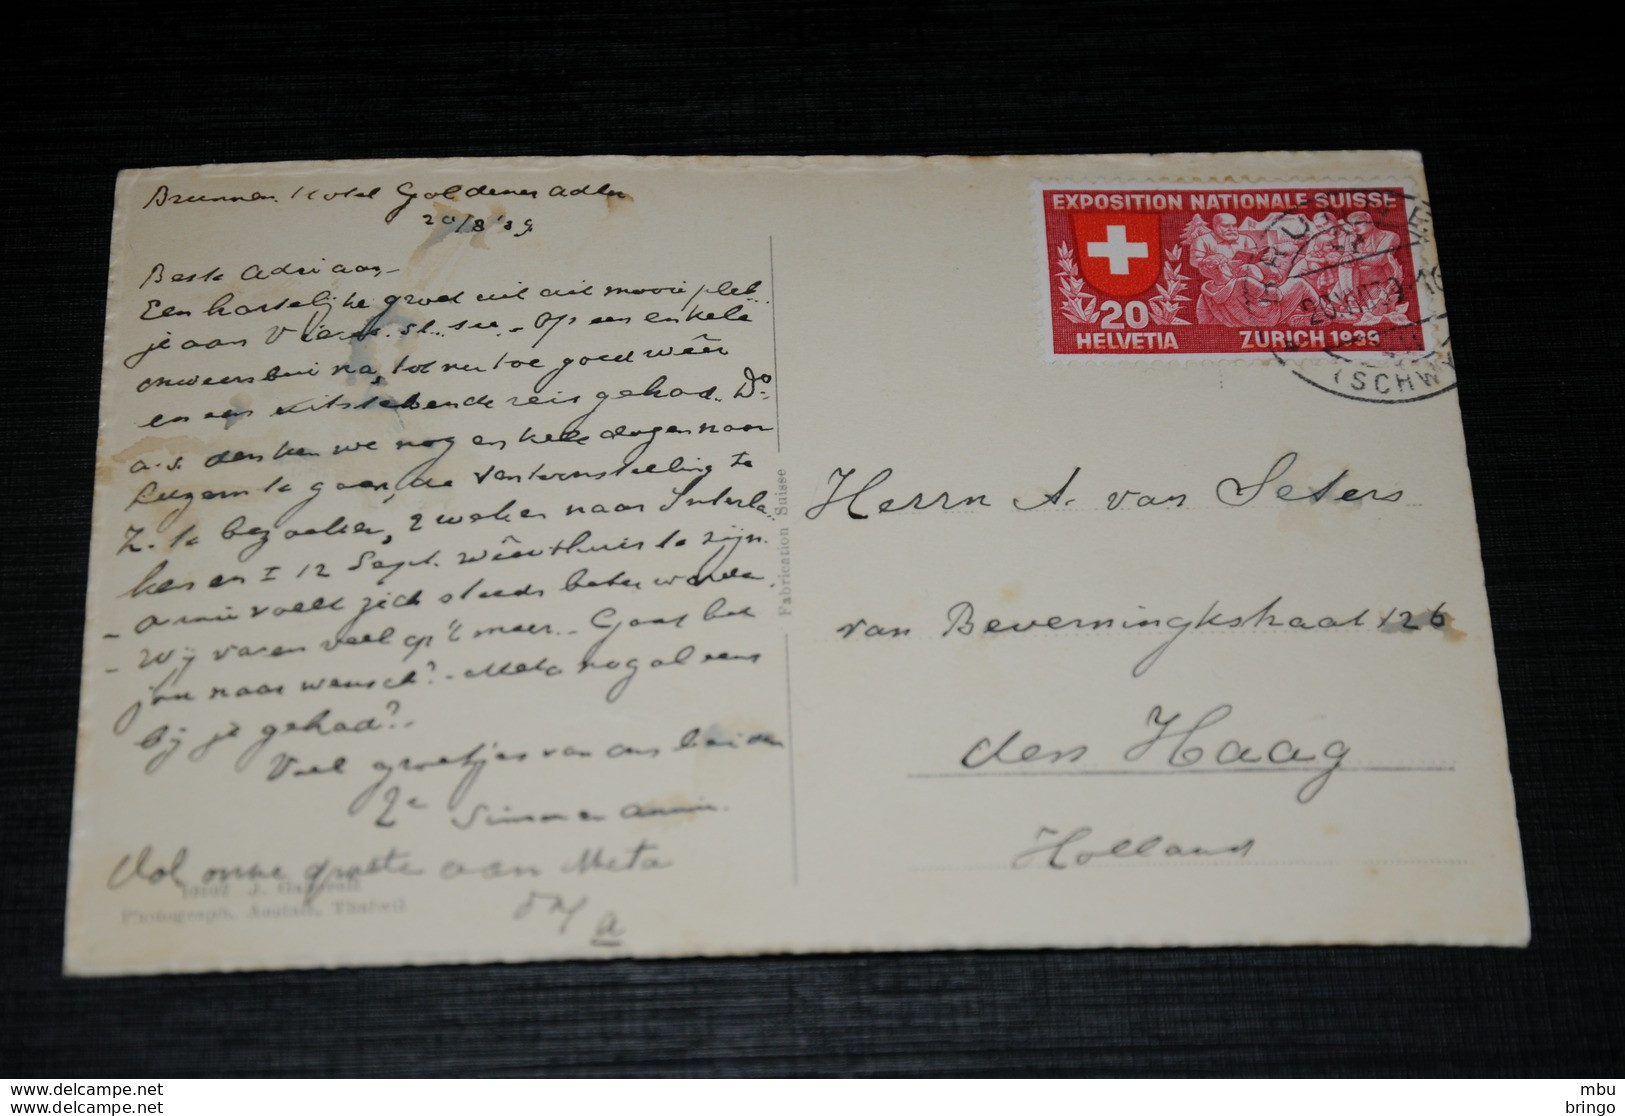 Brunnen. Hotel Goldener Adler
20/8 '39
Beste Adriaan,-
Een hartelijke groet uit dit mooie plek-
je aan 't Vierw. st. see. - Op een enkele
onweersbui na, tot nu toe goed wêer
en een uitstekende reis gehad. Do-
a.s. denken we nog enkele dagen naar
Luzern te gaan, de tentoonstelling te
Z. te bezoeken, 2 weken naar Interla-
ken en ± 12 Sept. wêer thuis te zijn.
- Annie voelt zich steeds beter worden.
- Wij varen veel op 't meer. - Gaat het
jou naar wensch? - Meta nog al eens
bij je gehad? -
Veel groetjes van ons beiden
Simon en Annie.
Ook onze groete aan Meta
a
10107 J. Gaberell
Photograph. Anstalt, Thalwil
Fabrication Suisse
EXPOSITION NATIONALE SUISSE
20
HELVETIA ZURICH 1939
BRUNNEN
20.VIII.39-16
(SCHWYZ)
Herrn A. van Seters
van Beverningkstraat 126
den Haag
Holland
mbu
bringo